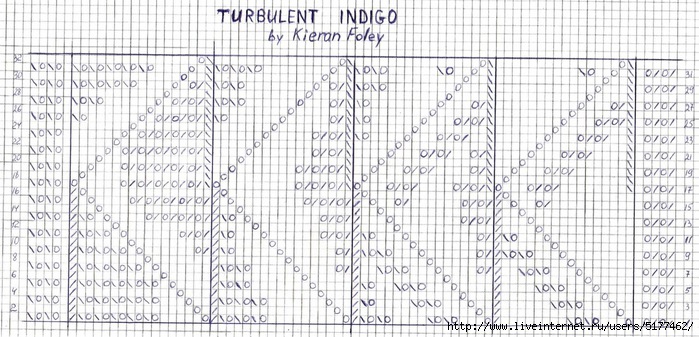 TURBULENT INDIGO
by Kieran Foley
32
30
28
26
24
22
20
18
16
14
12
10
8
6
4
2
31
29
27
25
23
21
19
17
15
13
11
9
7
5
3
http://www.liveinternet.ru/users/5177462/